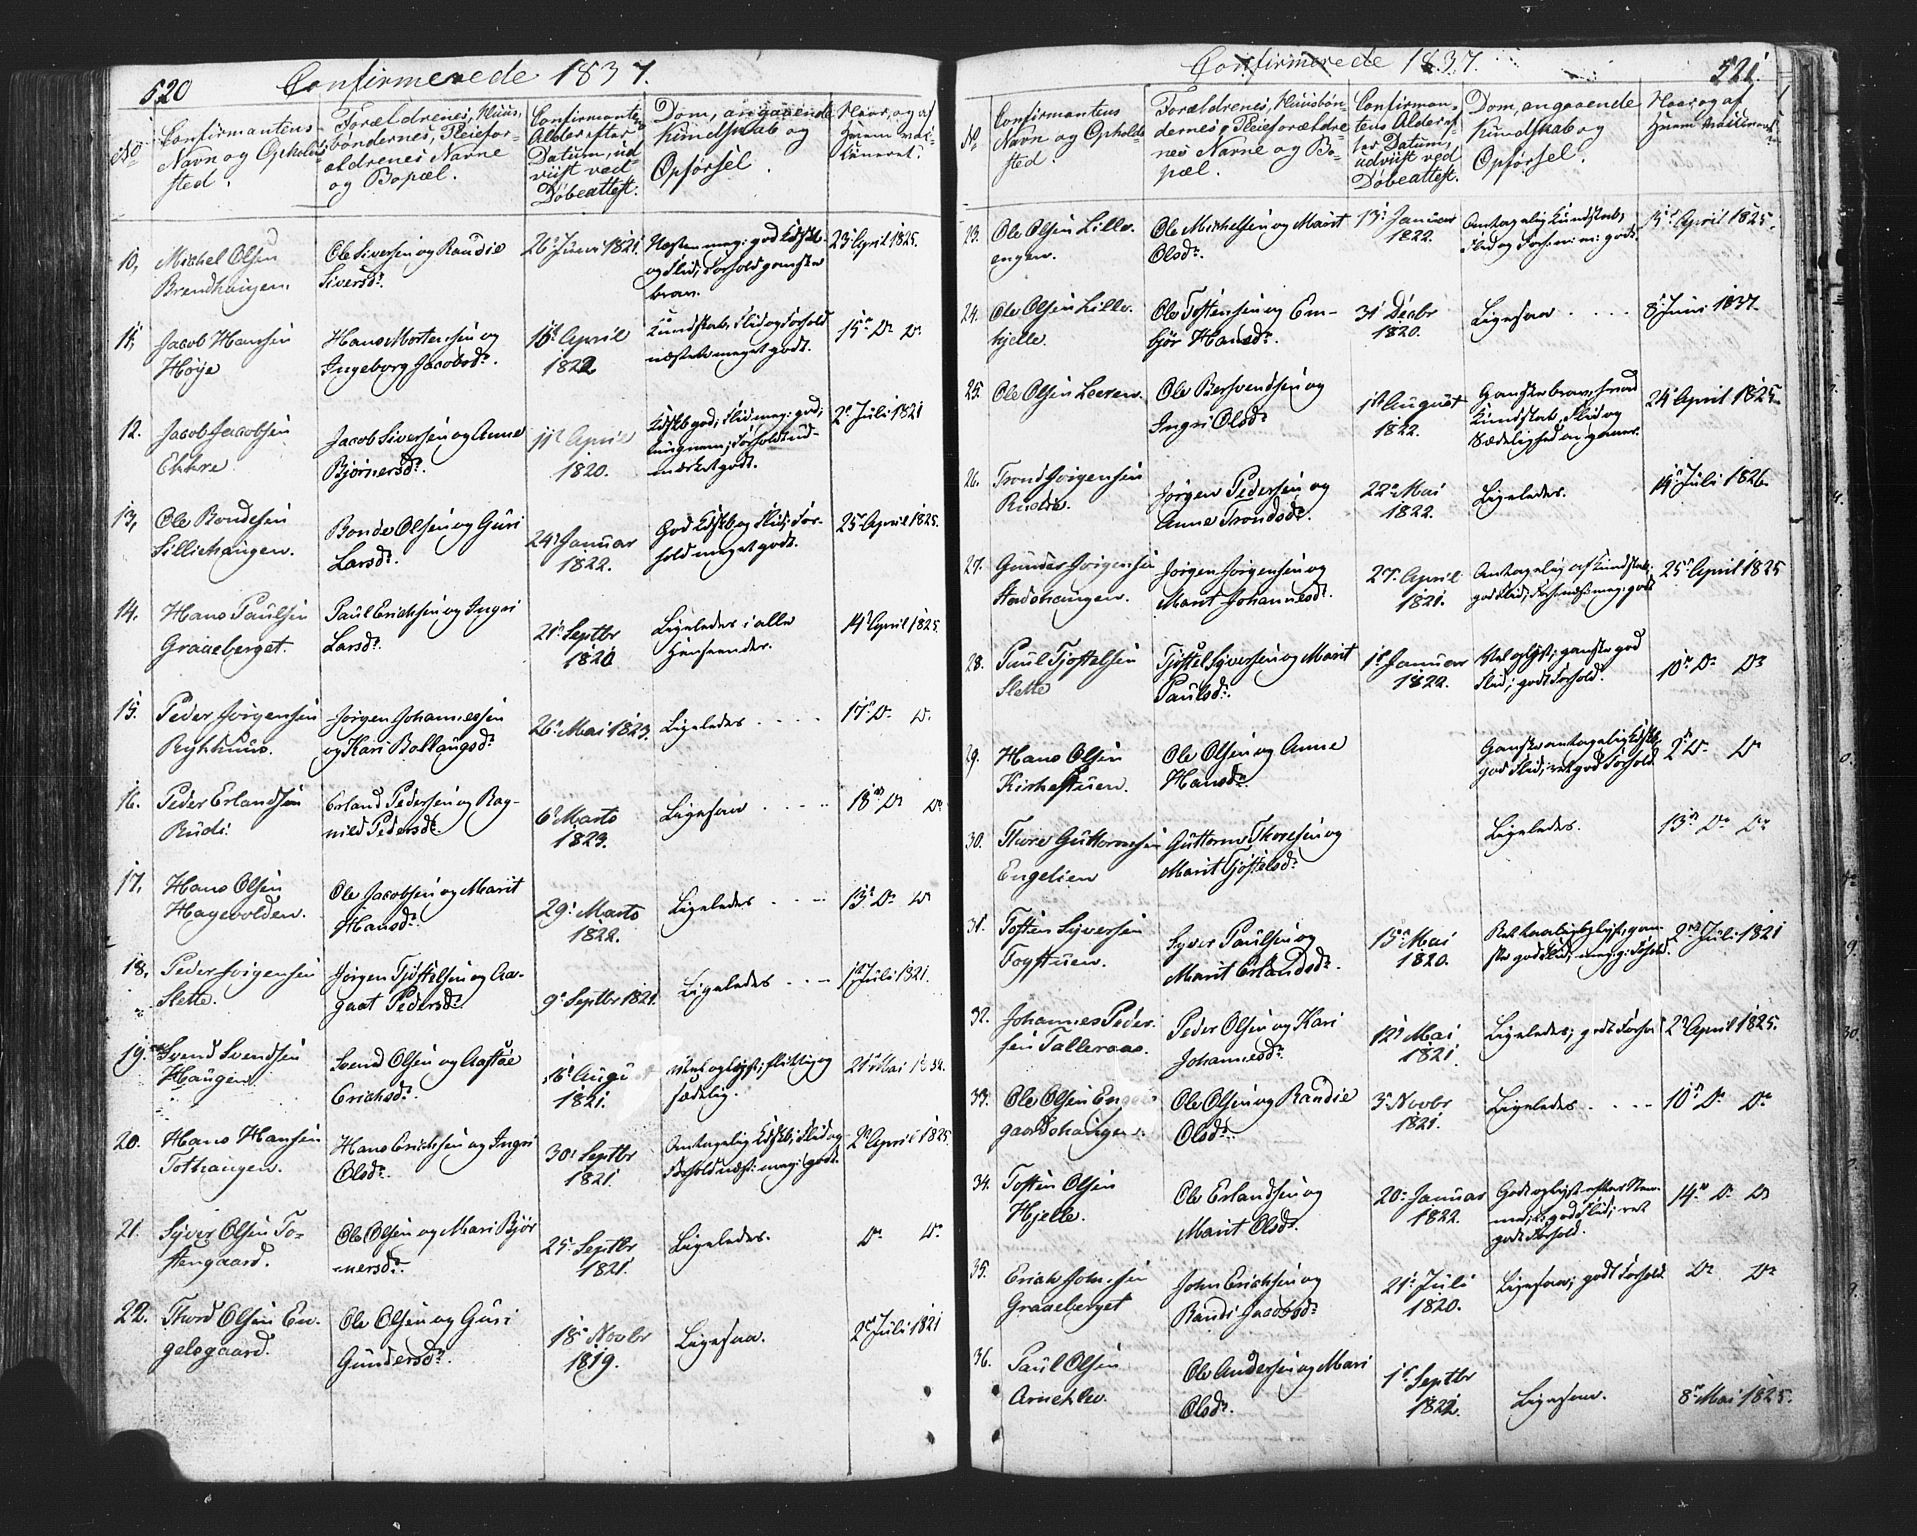 520
Confirmerede 1837.
No
Confirmantens
Navn og Opholds
sted.
Forældrenes, Huus-
bondernes, Pleiefor-
ældrenes Navne
og Bopæl.
Confirmantens
Alder efter
Datum, ud
viist ved
Døbeattest.
Dom, angaaende
Kundskab og
Opførsel.
Naar, og af
hvem vac-
cineret.
10, Michel Olsen
Brendhaugen.
Ole Siversen og Randie
Siversdr.
26 Juni 1821.
Næsten meg: god Kdskb
og Flid; Forhold ganske
brav.
23 April 1825.
11, Jacob Hansen
Høye
Hans Mortensen og
Ingeborg Jacobsdr.
16 April
1822
Kundskab, Flid og Forhold
næsten meget godt.
15n Do Do
12. Jacob Jacobsen
Ekkre
Jacob Siversen og Anne
Bjørnersdr.
11 April
1820.
Kdskb god; Flid meg: god;
Forhold ud-
mærket godt.
2n Juli 1821
13, Ole Bondesen
Lilliehaugen.
Bonde Olsen og Guri
Larsdr.
24 Januar
1822.
God Kdskb og Flid; For-
hold meget godt.
25 April 1825.
14. Hans Paulsen
Graaeberget.
Paul Erichsen og Ingri
Larsdr.
21n Septbr
1820
Ligeledes i alle
Henseender.
14 April 1825.
15. Peder Jørgensen
Rykhuus.
Jørgen Johannessen
og Kari Bollaugsdr
26 Mai 1823.
Ligeledes
17n Do Do.
16. Peder Erlandsen
Rudi
Erland Pedersen og Rag-
nild Pedersdr.
6 Marts
1823.
Ligesaa
18n Do Do
17, Hans Olsen
Hagevolden.
Ole Jacobsen og Marit
Hansdr.
29 Marts
1822.
Ligeledes
13n Do Do
18, Peder Jørgensen
Slette.
Jørgen Tjøstelsen og Aa-
gaat Pedersdr.
9 Septbr 1821.
Ligeledes
1n Juli 1821.
19. Svend Svendsen
Haugen.
Svend Olsen og Aastøe
Erichsdr.
16 Augu
1821.
Vel oplyst; flittig og
sædelig.
21 Mai 1834.
20. Hans Hansen
Tothaugen.
Hans Erichsen og Ingri
Olsdr.
30 Septbr
1821.
Antagelig Kdskb; Flid og
Forhold næst: meg: godt.
2n April 1825.
21. Syver Olsen To-
stengaard.
Ole Olsen og Mari Bjør
-nersdr.
25 Septbr
1821.
Ligeledes.
Do Do
22. Thord Olsen En-
gelsgaard.
Ole Olsen og Guri
Gundersdr.
18 Novbr
1819.
Ligesaa.
2n Juli 1821
521.
Confirmerede 1837.
No
Confirmantens
Navn og Opholds
sted.
Forældrenes, Huusbon-
dernes, Pleieforældre-
nes Navne og Bo-
pæl.
Confirman-
tens Alder ef-
ter Datum,
udviist ved
Døbeattest.
Dom, angaaende
Kundskab og
Opførsel.
Naar, og af
hvem vaccineret.
23. Ole Olsen Lille-
engen.
Ole Michelsen og Marit
Olsdr.
13 Januar
1822.
Antagelig Kundskab,
Flid og Forh: m: godt.
15 April 1825.
24. Ole Olsen Lille-
hjelle.
Ole Tostensen og Em-
bjør Hansdr.
31 Decbr
1820.
Ligesaa
8 Juni 1837.
25. Ole Olsen Leeren.
Ole Bersvendsen og
Ingri Olsdr
1n August
1822.
Kundskab, Flid og
24 April 1825.
26. Trond Jørgensen
Rudie.
Jørgen Pedersen og
Anne Trondsdr.
22 Mai
1822.
Ligeledes.
14 Juli 1826.
27. Gunder Jørgensen
Stadshaugen.
Jørgen Jørgensen og
Marit Johannesdr.
27 April
1821.
25 April 1825
28. Paul Tjøstelsen
Slette
Tjøstel Syversen og Marit
Paulsdr.
1n Januar
1822.
Vel oplyst; ganske god
Flid; godt Forhold.
10n Do Do
29. Hans Olsen
Kirkestuen.
Ole Olsen og Anne
Hansdr.
Ganske antagelig Kdskb,
god Flid; ret god Forhold.
2n Do Do
30. Thore Guttormsen
Engelien
Guttorm Thoresen og
Marit Tjøstelsdr.
Ligeledes.
13n Do Do
31. Tosten Syversen
Fogstuen.
Syver Paulsen og
Marit Erlandsdr.
15 Mai
1820.
2n Juli 1821
32. Johannes Peder-
sen Talleraas.
Peder Olsen og Kari
Johannesdr.
12 Mai
1821
Ligeledes; godt Forho
2n April 1825.
33. Ole Olsen Engels
gaardshaugen.
Ole Olsen og Randie
Olsdr.
3 Novbr
1821.
Ligeledes
10n Do Do
34. Tosten Olsen
Hjelle.
Ole Erlandsen og
Marit Olsdr.
20 Januar
1822.
Godt oplyst efter Nem-
me; god Flid; ret
godt Forhold.
14n Do Do
35. Erich Johnsen
Graaeberget
John Erichsen og
Randi Jacobsdr
21 Juli
1820.
Ligesaa; godt Forhold.
Do Do
36. Paul Olsen
Arneklev.
Ole Andersen og Mari
Olsdr.
1n Septbr
1822.
Ligesaa.
8 Mai 1825.